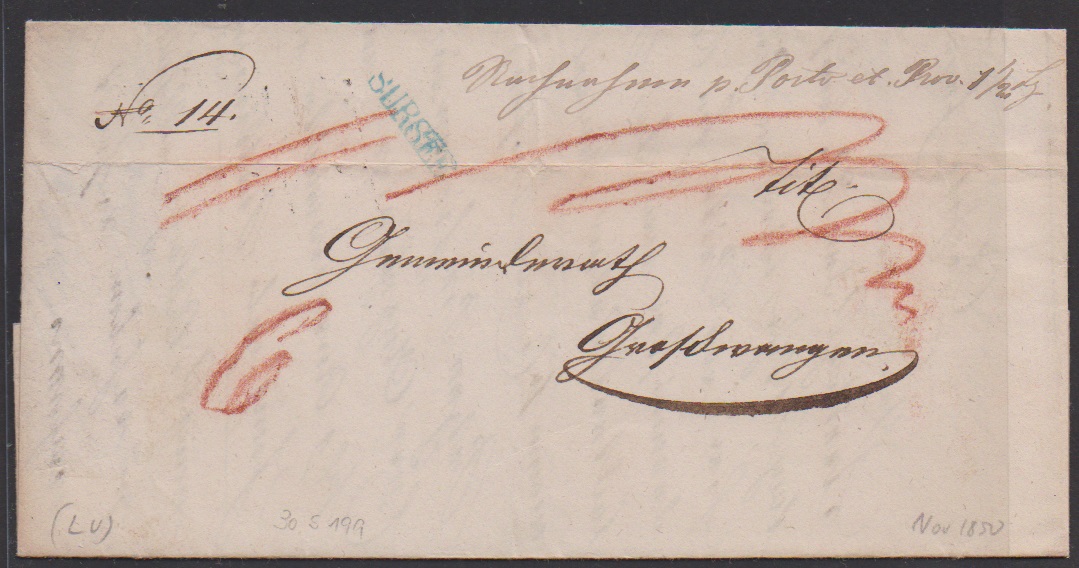 Nachnahme p. Porto et. Prov. 1 1/2 bz.
No. 14.
SURSEE
tit.
Gemeinderath
Grosswangen.
6
(LU)
30 5 199
Nov 1850